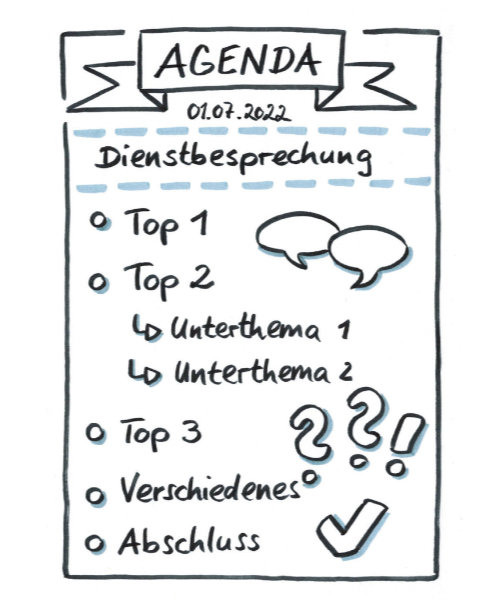 AGENDA
01.07.2022
Dienstbesprechung
Top 1
Top 2
↳ Unterthema 1
↳ Unterthema 2
Top 3
??!
Verschiedenes
Abschluss